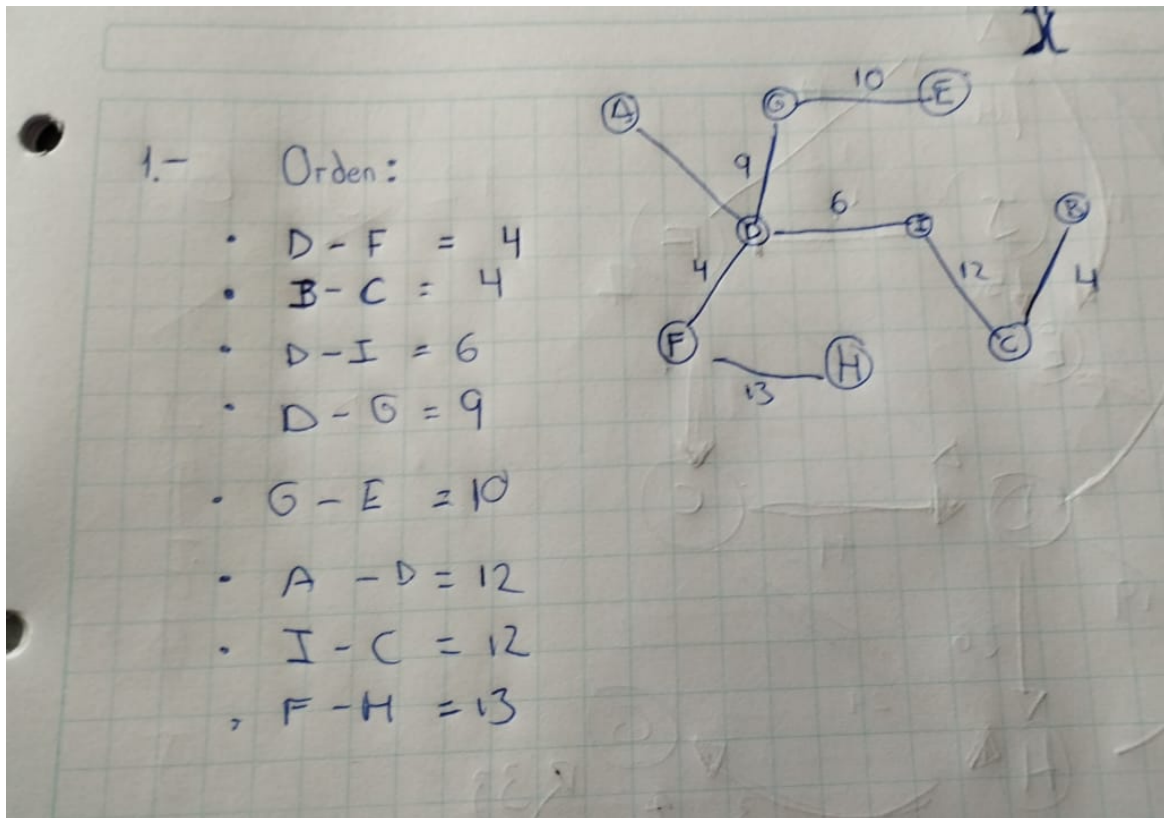 1.- Orden:
• D - F = 4
• B - C = 4
• D - I = 6
• D - G = 9
• G - E = 10
• A - D = 12
• I - C = 12
• F - H = 13
A
G
10
E
9
D
6
I
B
4
12
4
F
13
H
C